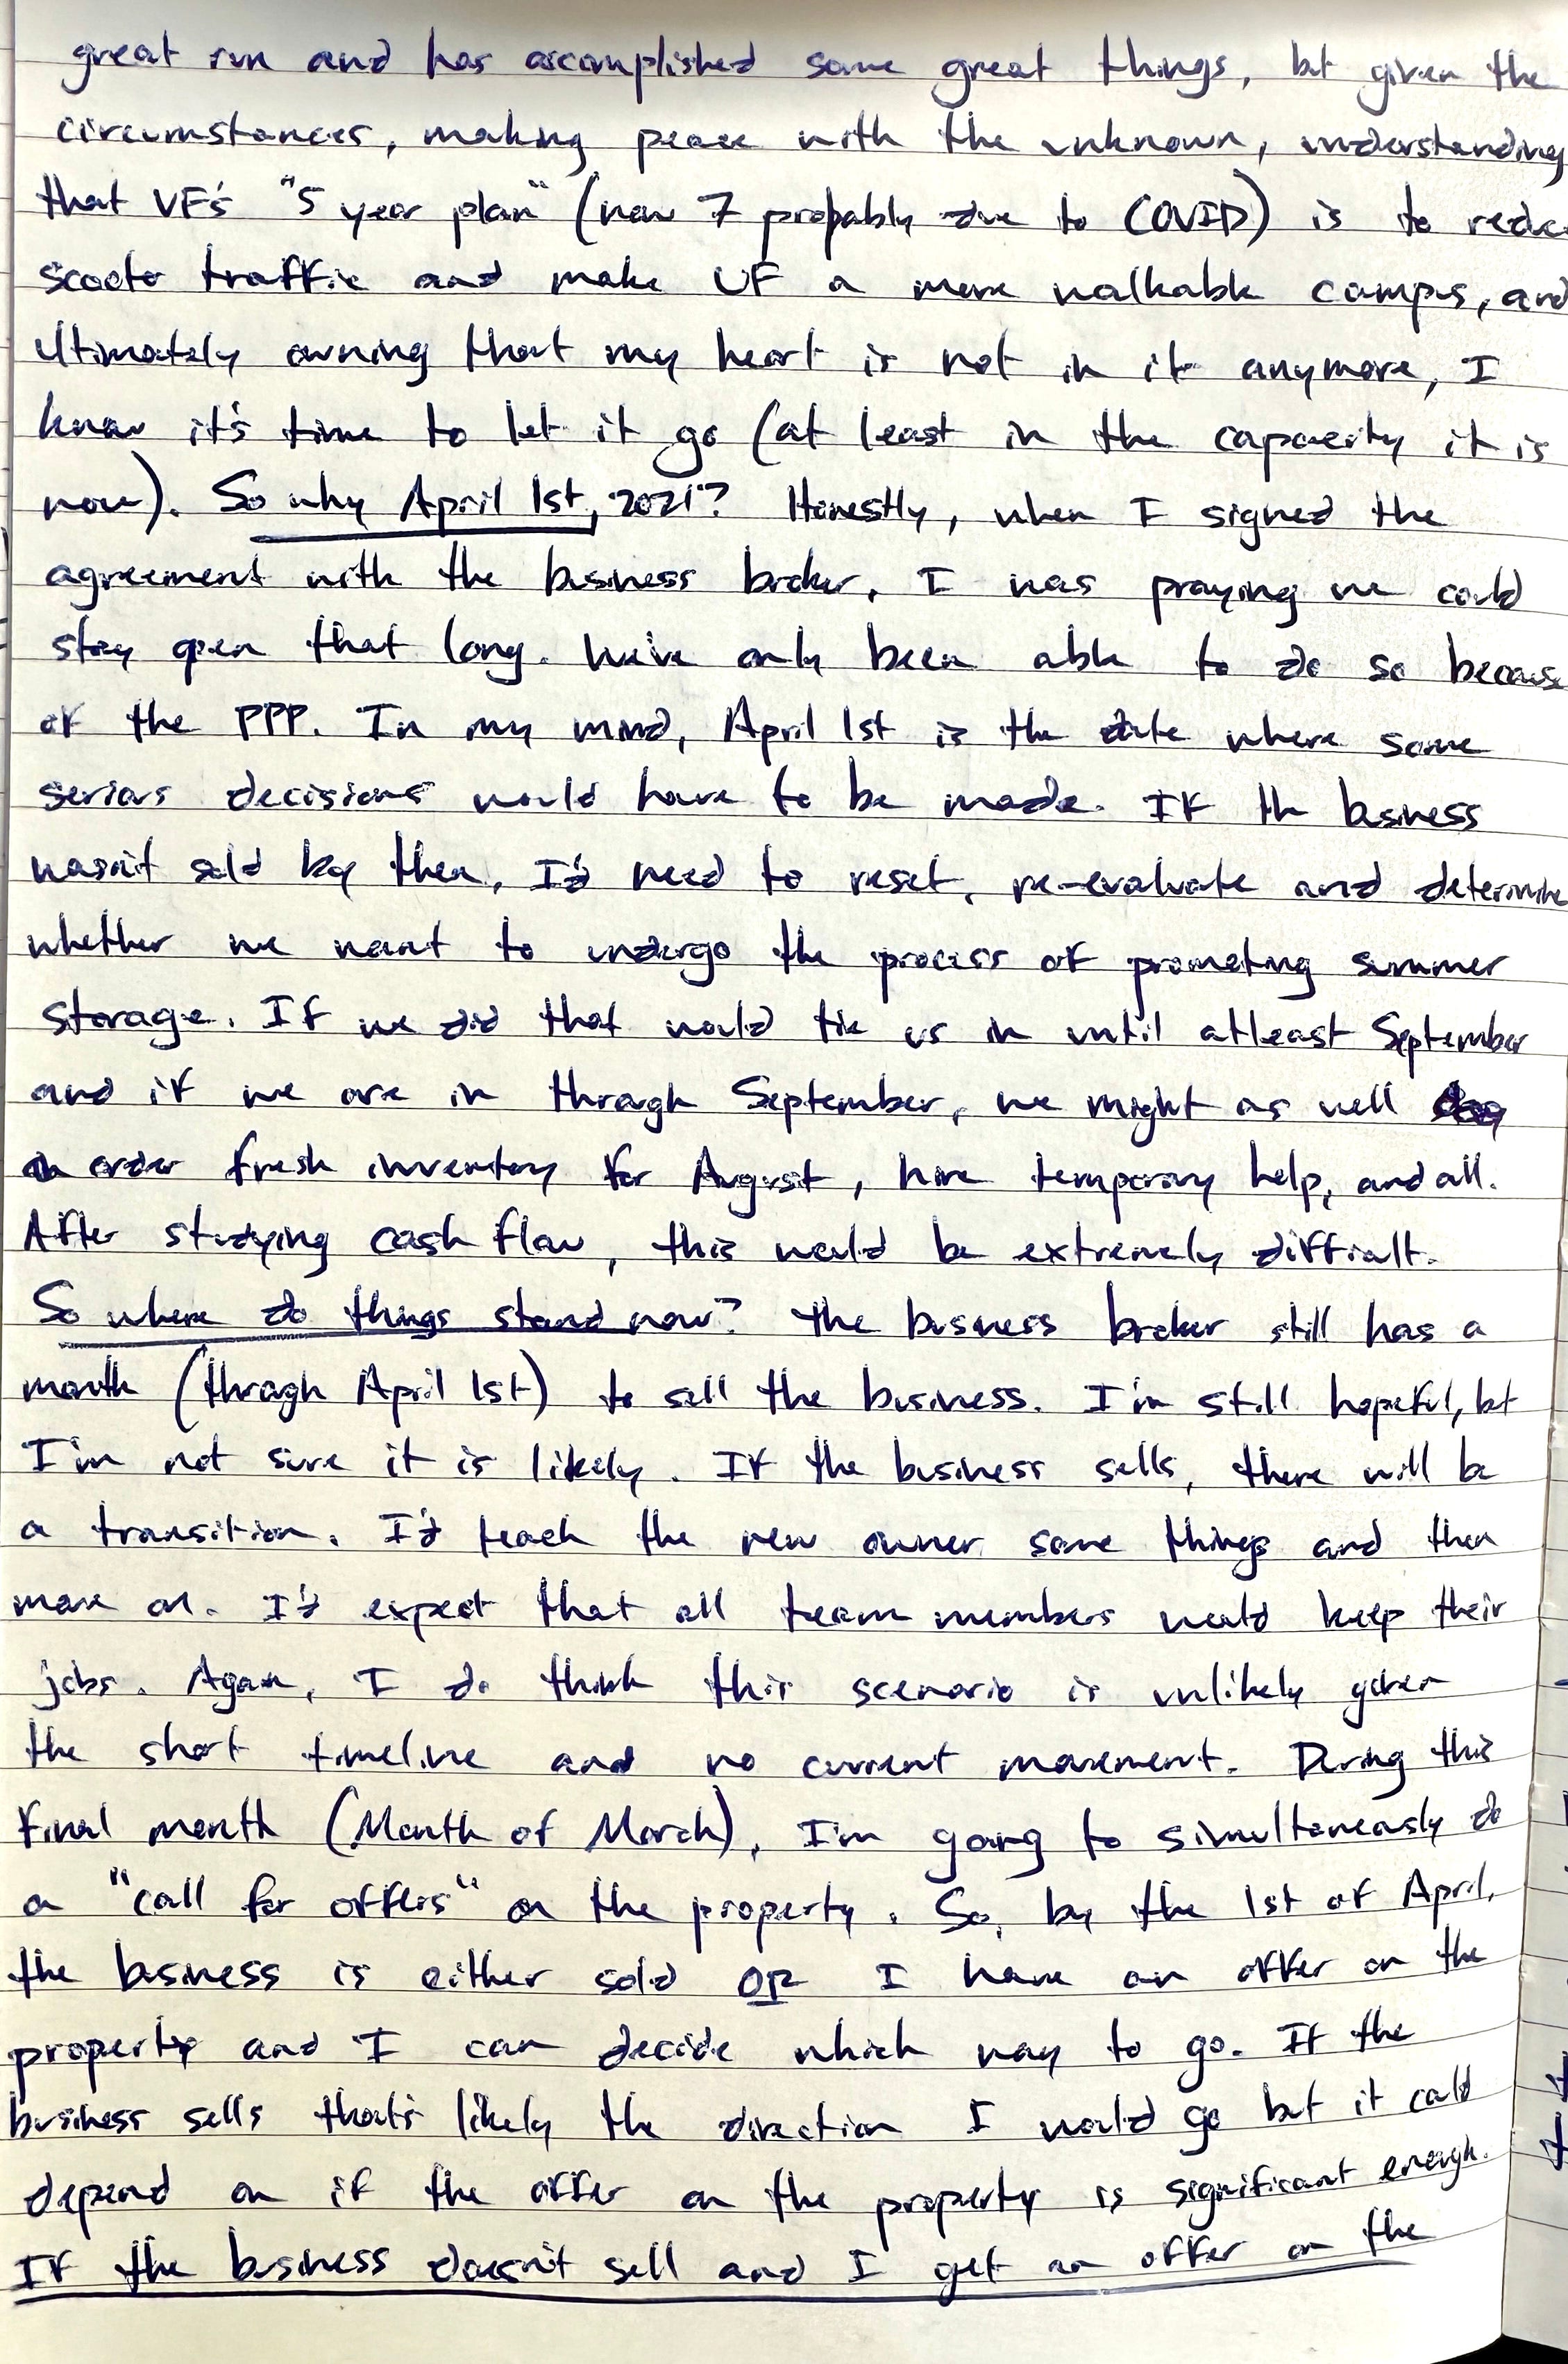 great run and has accomplished some great things, but given the
circumstances, making peace with the unknown, understanding
that UF's "5 year plan" (now 7 probably due to COVID) is to reduce
scooter traffic and make UF a more walkable campus, and
ultimately owning that my heart is not in it anymore, I
know it's time to let it go (at least in the capacity it is
now). So why April 1st, 2021? Honestly, when I signed the
agreement with the business broker, I was praying we could
stay open that long. We've only been able to do so because
of the PPP. In my mind, April 1st is the date where some
serious decisions would have to be made. If the business
wasn't sold by then, I'd need to reset, re-evaluate and determine
whether we want to undergo the process of promoting summer
storage. If we did that would tie us in until atleast September
and if we are in through September, we might as well
order fresh inventory for August, hire temporary help, and all.
After studying cash flow, this would be extremely difficult.
So where do things stand now? The business broker still has a
month (through April 1st) to sell the business. I'm still hopeful, but
I'm not sure it is likely. If the business sells, there will be
a transition. I'd teach the new owner some things and then
move on. I'd expect that all team members would keep their
jobs. Again, I do think this scenario is unlikely given
the short timeline and no current movement. During this
final month (Month of March), I'm going to simultaneously do
a "call for offers" on the property. So, by the 1st of April,
the business is either sold OR I have an offer on the
property and I can decide which way to go. If the
business sells that's likely the direction I would go but it could
depend on if the offer on the property is significant enough.
If the business doesn't sell and I get an offer on the